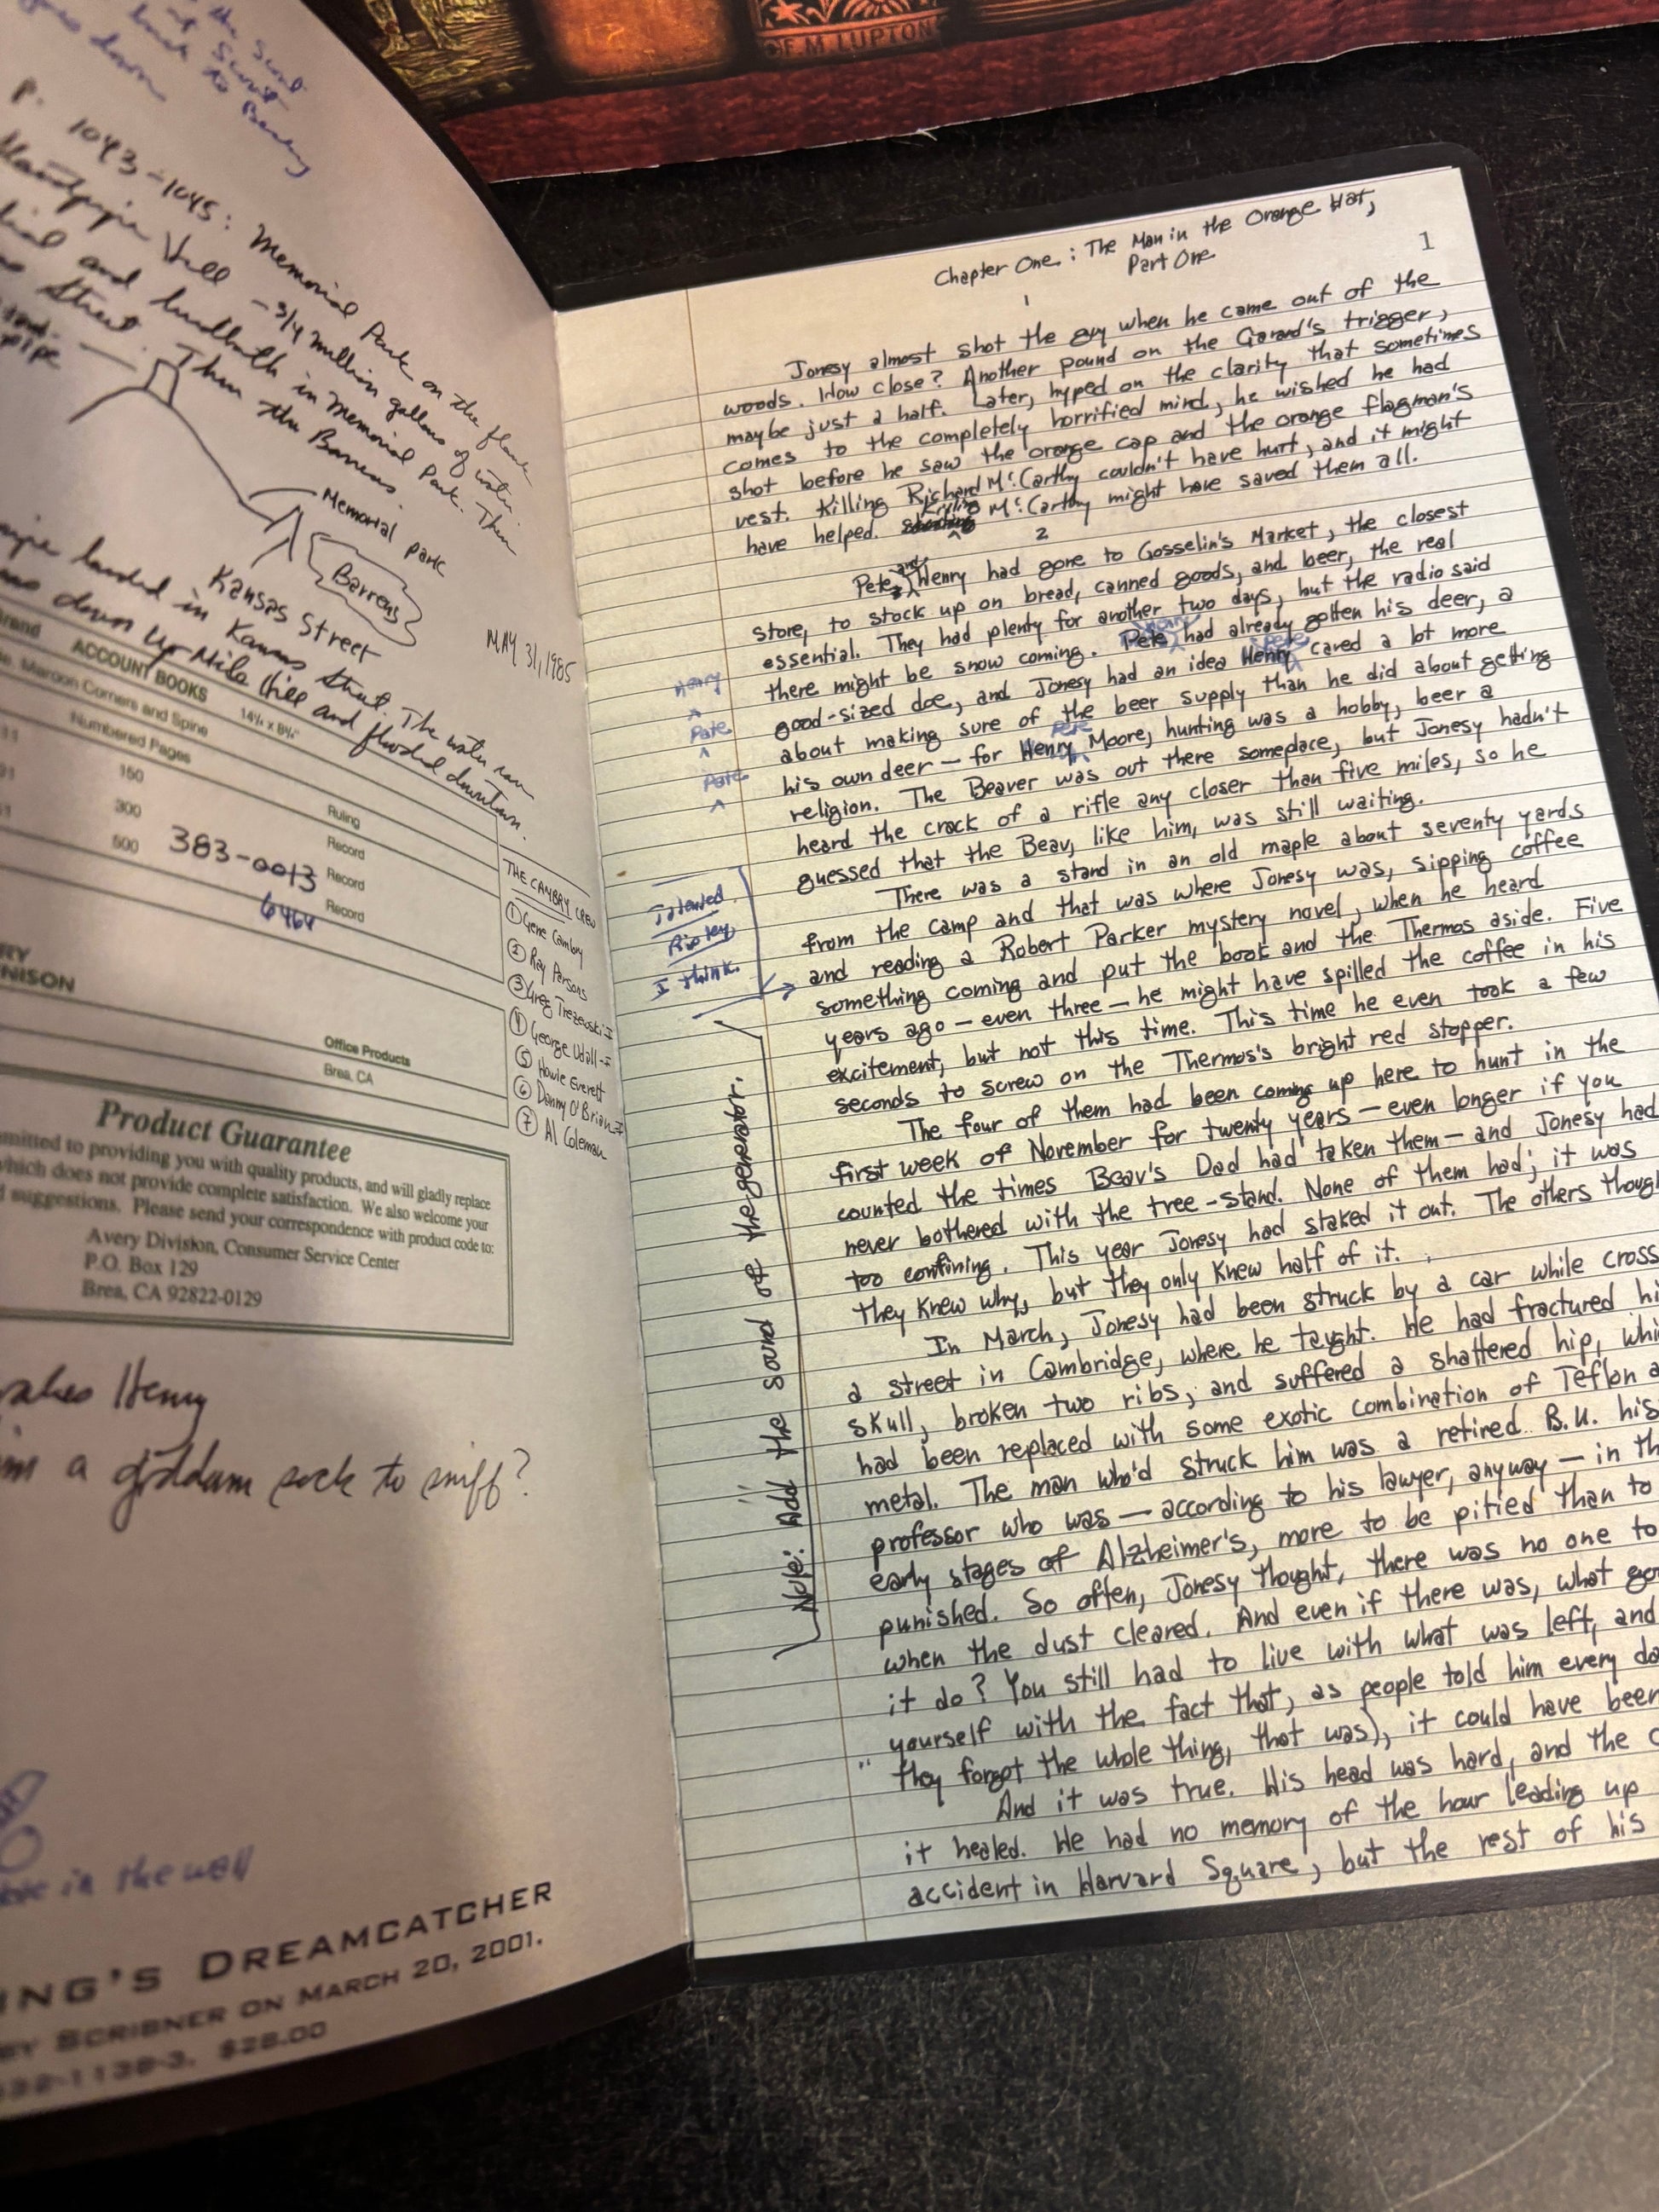 OF M LUPTON
the Sew
back to Barry
down
P. 1043-1045: Memorial Park on the
Standpipe Hill - 3/4 million gallons of water
and birdbath in Memorial Park. Then
Street. Then the Barrens.
pipe
Memorial park
Barrens
Kansas Street
MAY 31, 1985
landed in Kansas Street. The water ran
down Up-Mile Hill and flooded downtown.
Brand
ACCOUNT BOOKS
14¼ x 8¾"
Maroon Corners and Spine
Numbered Pages
Ruling
150
Record
300
Record
500
Record
383-0013
6464
THE CAMBRY CREW
① Gene Cambry
② Ray Parsons
③ Greg Trezewski-I
④ George Udall-I
⑤ Howie Everett
⑥ Danny O'Brian-I
⑦ Al Coleman
RY
NNISON
Office Products
Brea, CA
Product Guarantee
mitted to providing you with quality products, and will gladly replace
which does not provide complete satisfaction. We also welcome your
d suggestions. Please send your correspondence with product code to:
Avery Division, Consumer Service Center
P.O. Box 129
Brea, CA 92822-0129
Henry
a goddam sock to sniff?
in the wall
ING'S DREAMCATCHER
BY SCRIBNER ON MARCH 20, 2001.
$28.00
Chapter One: The Man in the Orange Hat,
Part One
1
1
Jonesy almost shot the guy when he came out of the
woods. How close? Another pound on the Garand's trigger,
maybe just a half. Later, hyped on the clarity that sometimes
comes to the completely horrified mind, he wished he had
shot before he saw the orange cap and the orange flagman's
vest. Killing Richard McCarthy couldn't have hurt, and it might
have helped. Killing McCarthy might have saved them all.
2
Pete and Henry had gone to Gosselin's Market, the closest
store, to stock up on bread, canned goods, and beer, the real
essential. They had plenty for another two days, but the radio said
there might be snow coming. Pete Henry had already gotten his deer, a
good-sized doe, and Jonesy had an idea Henry Pete cared a lot more
about making sure of the beer supply than he did about getting
his own deer — for Henry Pete Moore, hunting was a hobby, beer a
religion. The Beaver was out there someplace, but Jonesy hadn't
heard the crack of a rifle any closer than five miles, so he
guessed that the Beav, like him, was still waiting.
There was a stand in an old maple about seventy yards
from the camp and that was where Jonesy was, sipping coffee
and reading a Robert Parker mystery novel, when he heard
something coming and put the book and the Thermos aside. Five
years ago — even three — he might have spilled the coffee in his
excitement, but not this time. This time he even took a few
seconds to screw on the Thermos's bright red stopper.
The four of them had been coming up here to hunt in the
first week of November for twenty years — even longer if you
counted the times Beav's Dad had taken them — and Jonesy had
never bothered with the tree-stand. None of them had; it was
too confining. This year Jonesy had staked it out. The others thought
they knew why, but they only knew half of it.
In March, Jonesy had been struck by a car while cross
a street in Cambridge, where he taught. He had fractured hi
skull, broken two ribs, and suffered a shattered hip, whi
had been replaced with some exotic combination of Teflon a
metal. The man who'd struck him was a retired B.U. his
professor who was — according to his lawyer, anyway — in th
early stages of Alzheimer's, more to be pitied than to
punished. So often, Jonesy thought, there was no one to
when the dust cleared. And even if there was, what goo
it do? You still had to live with what was left, and
yourself with the fact that, as people told him every da
they forgot the whole thing, that was), it could have been
And it was true. His head was hard, and the c
it healed. He had no memory of the hour leading up
accident in Harvard Square, but the rest of his
Henry
Pete
Pete
Talented.
Ripley,
I think.
Note: Add the sound of the generator.